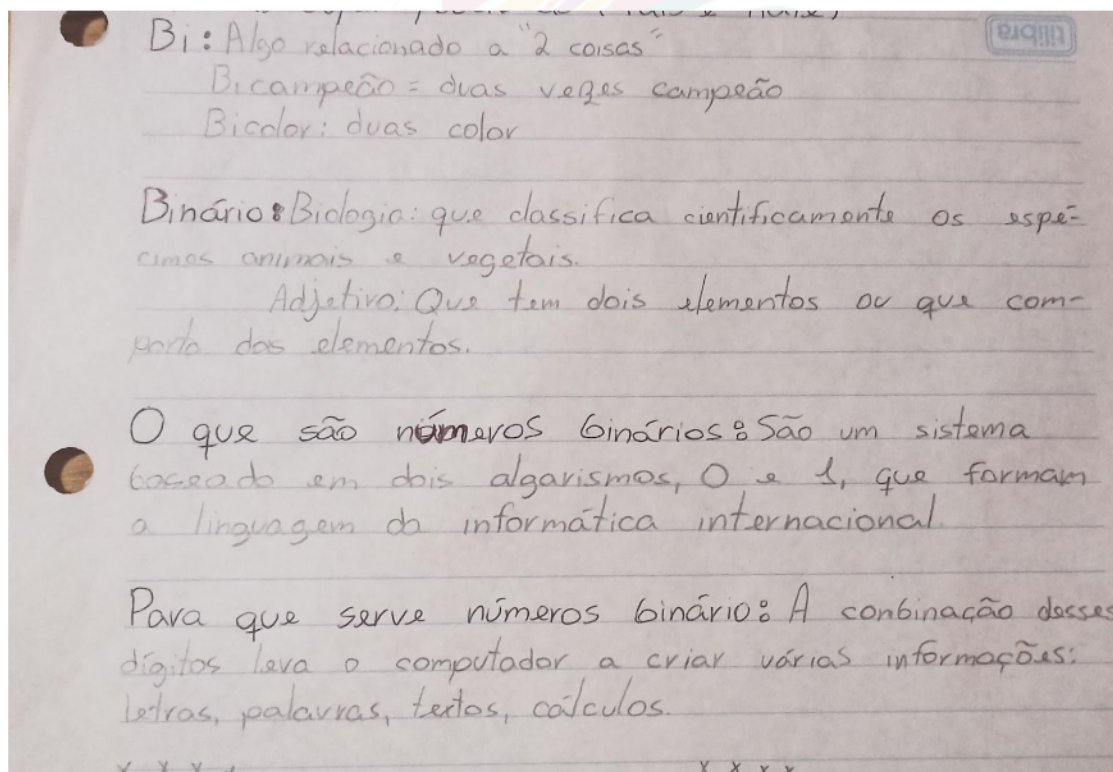 Bi: Algo relacionado a "2 coisas"
tilibra
Bicampeão = duas vezes campeão
Bicolor: duas color
Binário: Biologia: que classifica cientificamente os espé-
cimes animais e vegetais.
Adjetivo: Que tem dois elementos ou que com-
porta dois elementos.
O que são números binários: São um sistema
baseado em dois algarismos, 0 e 1, que formam
a linguagem da informática internacional.
Para que serve números binário: A conbinação desses
dígitos leva o computador a criar várias informações:
letras, palavras, textos, cálculos.